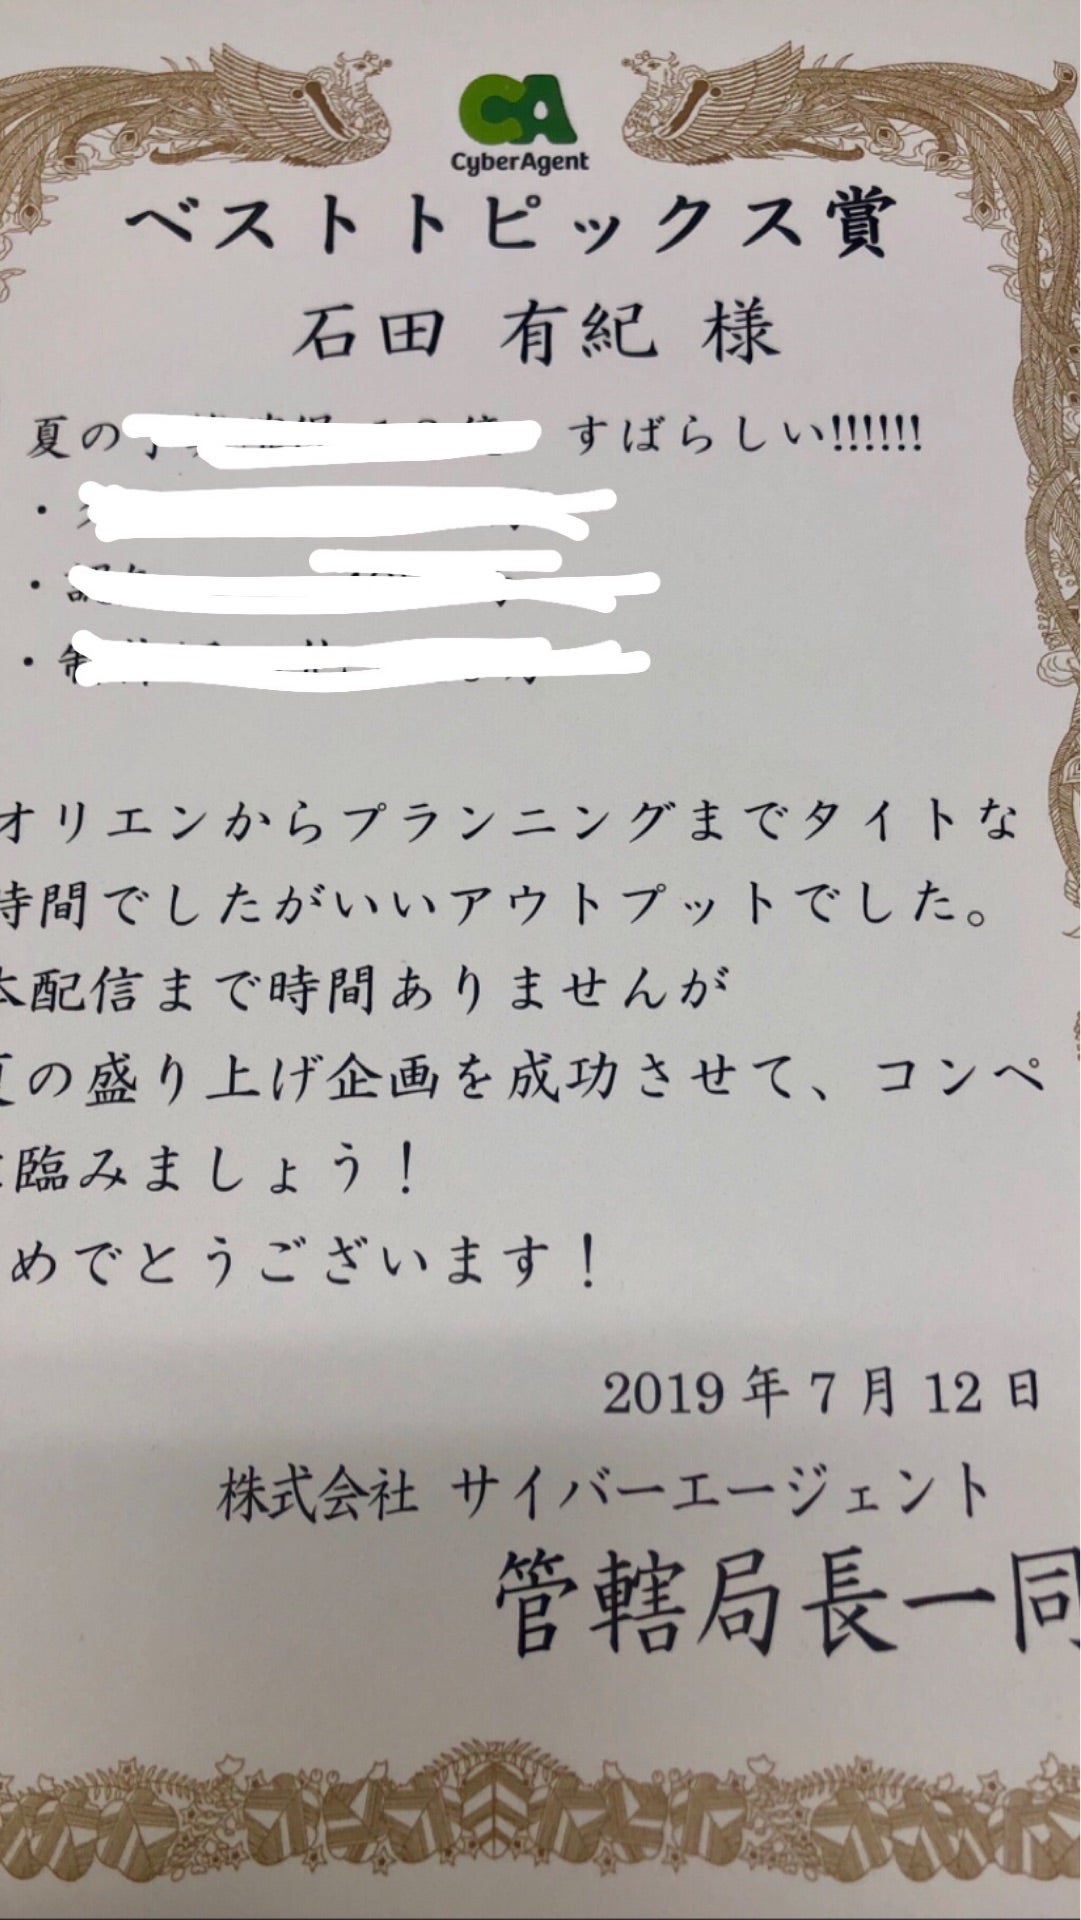 CA
CyberAgent
ベストトピックス賞
石田 有紀 様
夏の すばらしい!!!!!!
・
・
・
オリエンからプランニングまでタイトな
時間でしたがいいアウトプットでした。
本配信まで時間ありませんが
夏の盛り上げ企画を成功させて、コンペ
に臨みましょう!
めでとうございます!
2019年7月12日
株式会社 サイバーエージェント
管轄局長一同